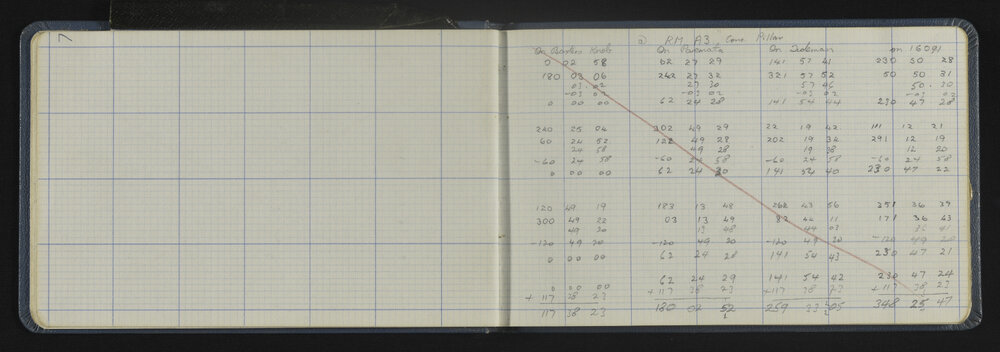 7
@ RM A3 Conc Pillar
On Basters Knob On Paremata On Tiedeman on 16091
0 02 58 62 27 29 141 57 41 230 50 28
180 03 06 242 27 32 321 57 52 50 50 31
03.02 27 30 57 46 50.30
-03 02 -03 02 -03 02 -03 02
0 00 00 62 24 28 141 54 44 230 47 28
240 25 04 302 49 29 22 19 42 111 12 21
60 24 52 122 49 28 202 19 34 291 12 19
24 58 49 28 19 38 12 20
-60 24 58 -60 24 58 -60 24 58 -60 24 58
0 00 00 62 24 30 141 54 40 230 47 22
120 49 19 183 13 48 262 43 56 351 36 39
300 49 22 03 13 49 82 44 11 171 36 43
49 20 13 48 44 03 36 41
-120 49 20 -120 49 20 -120 49 20 -120 49 20
0 00 00 62 24 28 141 54 43 230 47 21
62 24 29 141 54 42 230 47 24
0 00 00 +117 38 23 +117 38 23 +117 38 23
+117 38 23 180 02 52 259 33 05 348 25 47
117 38 23